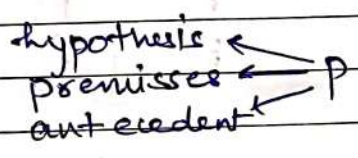 hypothesis
premisses P
antecedent